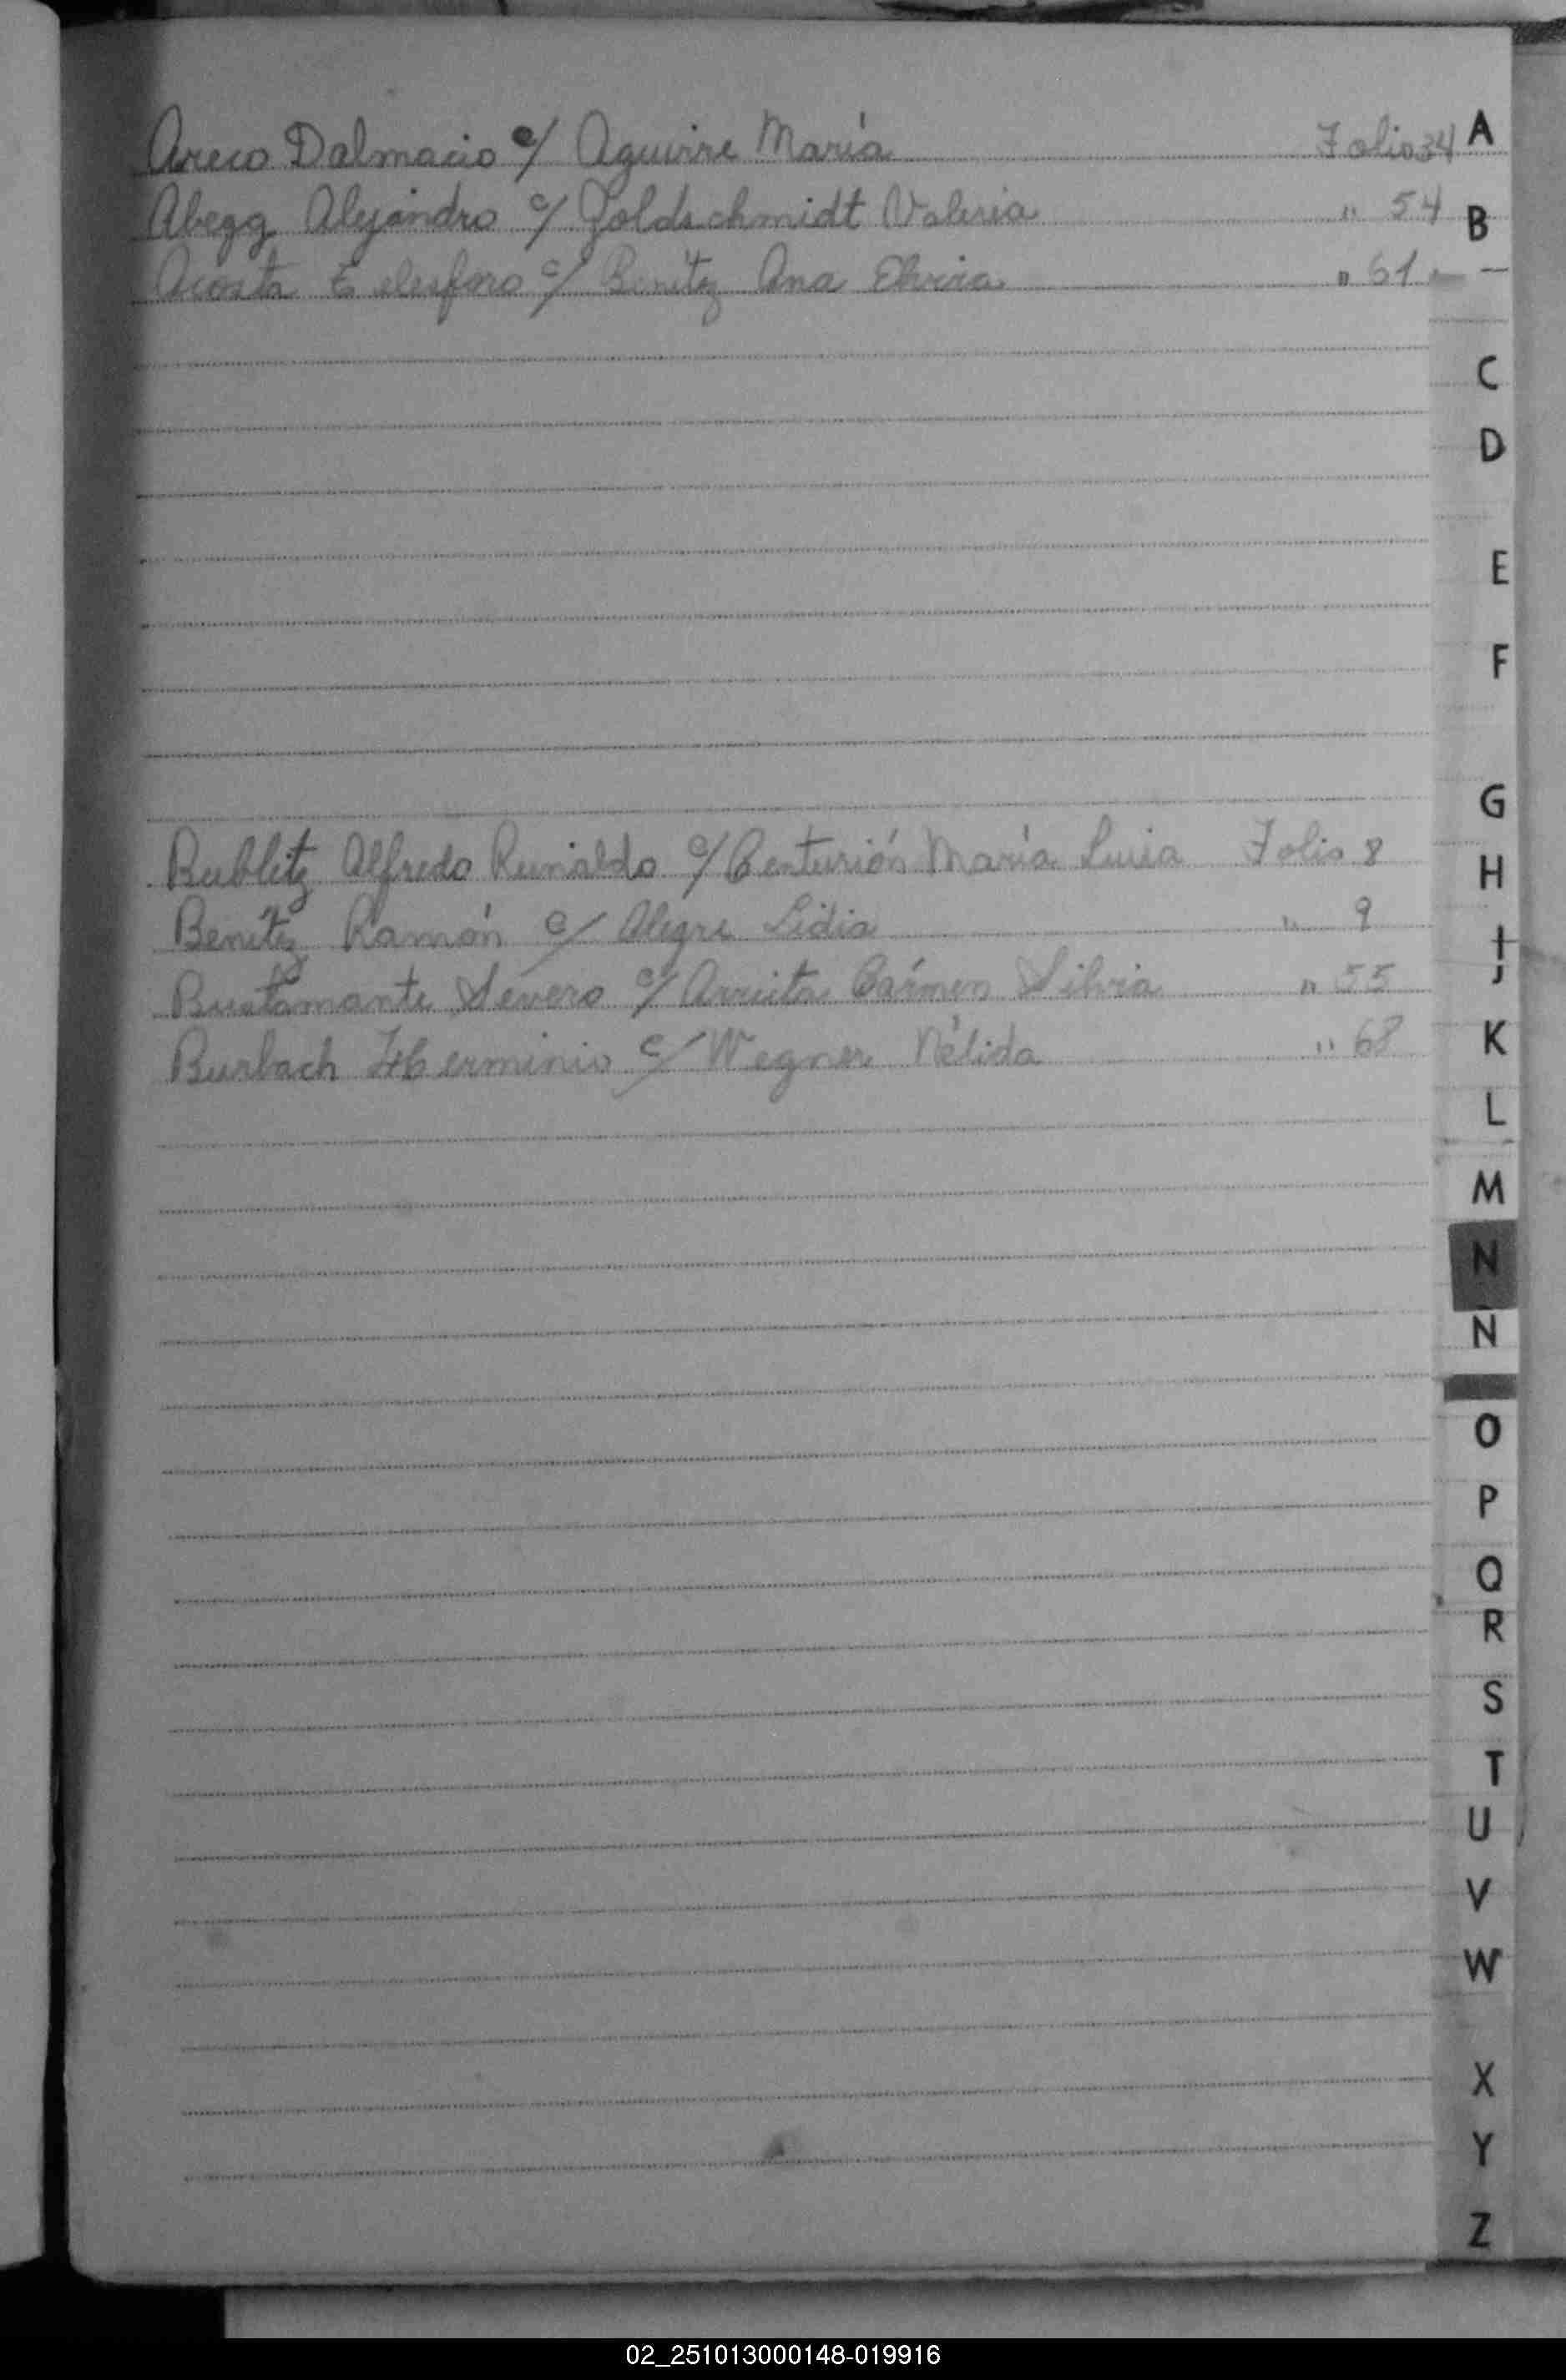 Areco Dalmacio c/ Aguirre María Folio 34
Abegg Alejandro c/ Goldschmidt Valeria " 54
Acosta Telesforo c/ Benítez Ana Elvira " 61.—
Bublitz Alfredo Reinaldo c/ Centurión María Luisa Folio 8
Benítez Ramón c/ Alegre Lidia " 9
Bustamante Severo c/ Arrieta Cármen Silvia " 55
Burbach Herminio c/ Wegner Nélida " 68
A
B
C
D
E
F
G
H
I
J
K
L
M
N
N
O
P
Q
R
S
T
U
V
W
X
Y
Z
02_251013000148-019916